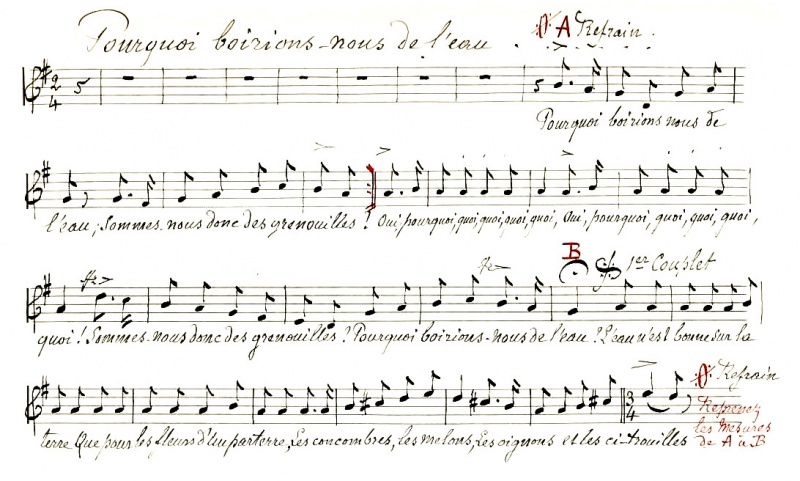 Pourquoi boirions-nous de l'eau.
A Refrain.
2 4
Pourquoi boirions nous de
l'eau, Sommes-nous donc des grenouilles! Oui pourquoi, quoi, quoi, quoi, quoi, Oui, pourquoi, quoi, quoi, quoi,
B 1er Couplet
quoi! Sommes-nous donc des grenouilles? Pourquoi boirions-nous de l'eau? L'eau n'est bonne sur la
Refrain
3 4
Reprenez
les mesures
de A à B
terre Que pour les fleurs d'un parterre, Les concombres, les melons, Les oignons et les ci-trouilles